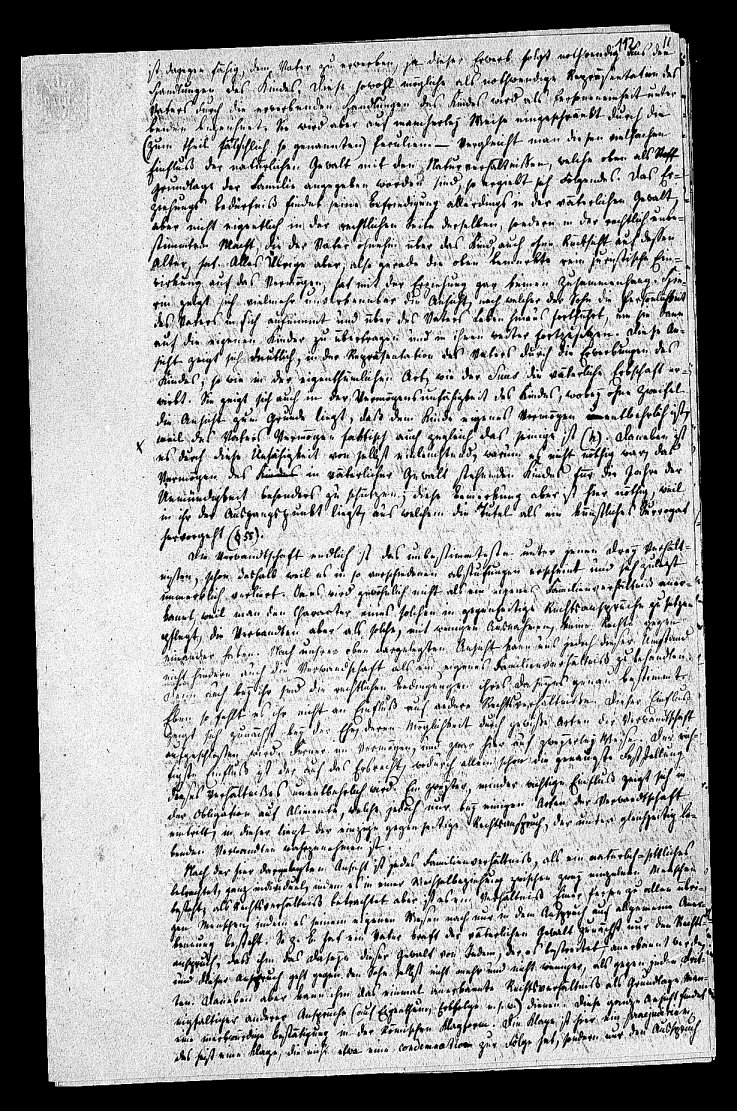 112 11
ist dagegen fähig, dem Vater zu erwerben, ja dieser Erwerb folgt nothwendig aus den
Handlungen des Kindes. Diese sowohl mögliche als nothwendige Repräsentation des
Vaters durch die erwerbenden Handlungen des Kindes wird als Personeneinheit unter
beiden bezeichnet. Sie wird aber auf mancherley Weise eingeschränkt durch die
(zum Theil fälschlich so genannten) Peculien. — Vergleicht man diesen vielfachen
Einfluß der väterlichen Gewalt mit den Naturverhältnissen, welche oben als Stoff
Grundlage der Familie angegeben worden sind, so ergiebt sich Folgendes. Das Er-
ziehungs bedürfniß findet seine Befriedigung allerdings in der väterlichen Gewalt,
aber nicht eigentlich in der rechtlichen Seite derselben, sondern in der rechtlich unbe-
stimmten Macht, die der Vater ohnehin über das Kind auch ohne Rücksicht auf dessen
Alter, hat. Alles Übrige aber, also gerade die oben bemerkte rein juristische Ein-
wirkung auf das Vermögen, hat mit der Erziehung gar keinen Zusammenhang. Hie-
rin zeigt sich vielmehr unverkennbar die Ansicht, nach welcher der Sohn die Persönlichkeit
des Vaters in sich aufnimmt und über des Vaters Leben hinaus fortführt, um sie dann
auf die eigenen Kinder zu übertragen und in ihnen weiter fortzusetzen. Diese An-
sicht zeigt sich deutlich, in der Repräsentation des Vaters durch die Erwerbungen des
Kindes; so wie in der eigenthümlichen Art, wie der Suus die väterliche Erbschaft er-
wirbt. Sie zeigt sich auch in der Vermögensunfähigkeit des Kindes, wobey ohne Zweifel
die Ansicht zum Grunde liegt, daß dem Kinde eigenes Vermögen entbehrlich ist,
weil des Vaters Vermögen faktisch auch zugleich das seinige ist (h). Daneben ist
es durch diese Unfähigkeit von selbst einleuchtend, warum es nicht nöthig war, das
Vermögen des in väterlicher Gewalt stehenden Kindes für die Jahre der
Unmündigkeit besonders zu schützen; diese Bemerkung aber ist hier nöthig, weil
in ihr der Ausgangspunkt liegt, aus welchem die Tutel als ein künstliches Surrogat
hervorgeht (§ 55).
Die Verwandtschaft endlich ist das unbestimmteste unter jenen drey Verhält-
nissen, schon deshalb weil es in so verschiedenen Abstufungen erscheint und sich zuletzt
unmerklich verliert. Oa es wird gewöhnlich nicht als ein eigenes Familienverhältniß aner-
kannt, weil man den Charakter eines solchen in gegenseitige Rechtsansprüche zu setzen
pflegt, die Verwandten aber als solche, mit wenigen Ausnahmen, keine Rechte gegen
einander haben. Nach unsrer oben dargelegten Ansicht kann uns jedoch dieser Umstand
nicht hindern auch die Verwandschaft als ein eigenes Familienverhältniß zu behandeln.
Denn auch bey ihr sind die rechtlichen Bedingungen ihres Daseyns genau bestimmt.
Eben so fehlt es ihr nicht an Einfluß auf andere Rechtsverhältnisse. Dieser Einfluß
zeigt sich zunächst bey der Ehe, deren Möglichkeit durch gewisse Arten der Verwandtschaft
ausgeschlossen wird. Ferner im Vermögen, und zwar hier auf zweyerley Weise. Der wich-
tigste Einfluß ist der auf das Erbrecht, wodurch allein schon die genaueste Feststellung
dieses Verhältnisses unentbehrlich wird. Ein zweyter, minder wichtiger Einfluß zeigt sich in
der Obligation auf Alimente, welche jedoch nur bey einigen Arten der Verwandtschaft
eintritt, in dieser liegt der einzige gegenseitige Rechtsanspruch, der unter gleichzeitig le-
benden Verwandten wahrzunehmen ist.
Nach der hier dargelegten Ansicht ist jedes Familienverhältniß, als ein natürlich-sittliches
betrachtet, ganz individuel, indem es in einer Wechselbeziehung zwischen zwey einzelnen Menschen
besteht; als Rechtsverhältniß betrachtet aber ist es ein Verhältniß einer Person zu allen übri-
gen Menschen, indem es seinem eigenen Wesen nach nur in dem Anspruch auf allgemeine Aner-
kennung besteht. So z. B. hat ein Vater kraft der väterlichen Gewalt zunächst nur den Rechts-
anspruch, daß ihm das Daseyn dieser Gewalt von Jedem, der es bestreitet anerkannt werde,
und dieser Anspruch geht gegen den Sohn selbst nicht mehr und nicht weniger, als gegen jeden Drit-
ten. Daneben aber kann ihm das einmal anerkannte Rechtsverhältniß als Grundlage man-
nigfaltiger anderer Ansprüche (auf Eigenthum, Erbfolge u. s. w.) dienen. Diese ganze Ansicht findet
eine merkwürdige Bestätigung in der Römischen Klagform. Die Klage ist hier ein praejudicium,
das heißt eine Klage, die nicht etwa eine condemnation zur Folge hat, sondern nur den Ausspruch